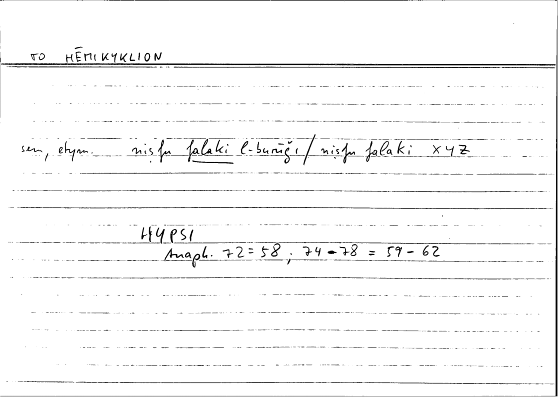 TO HĒMIKYKLION
sem, etym. niṣfu falaki l-burūǧi / niṣfu falaki XYZ
HYPSI
Anaph. 72 = 58 ; 74 - 78 = 59 - 62